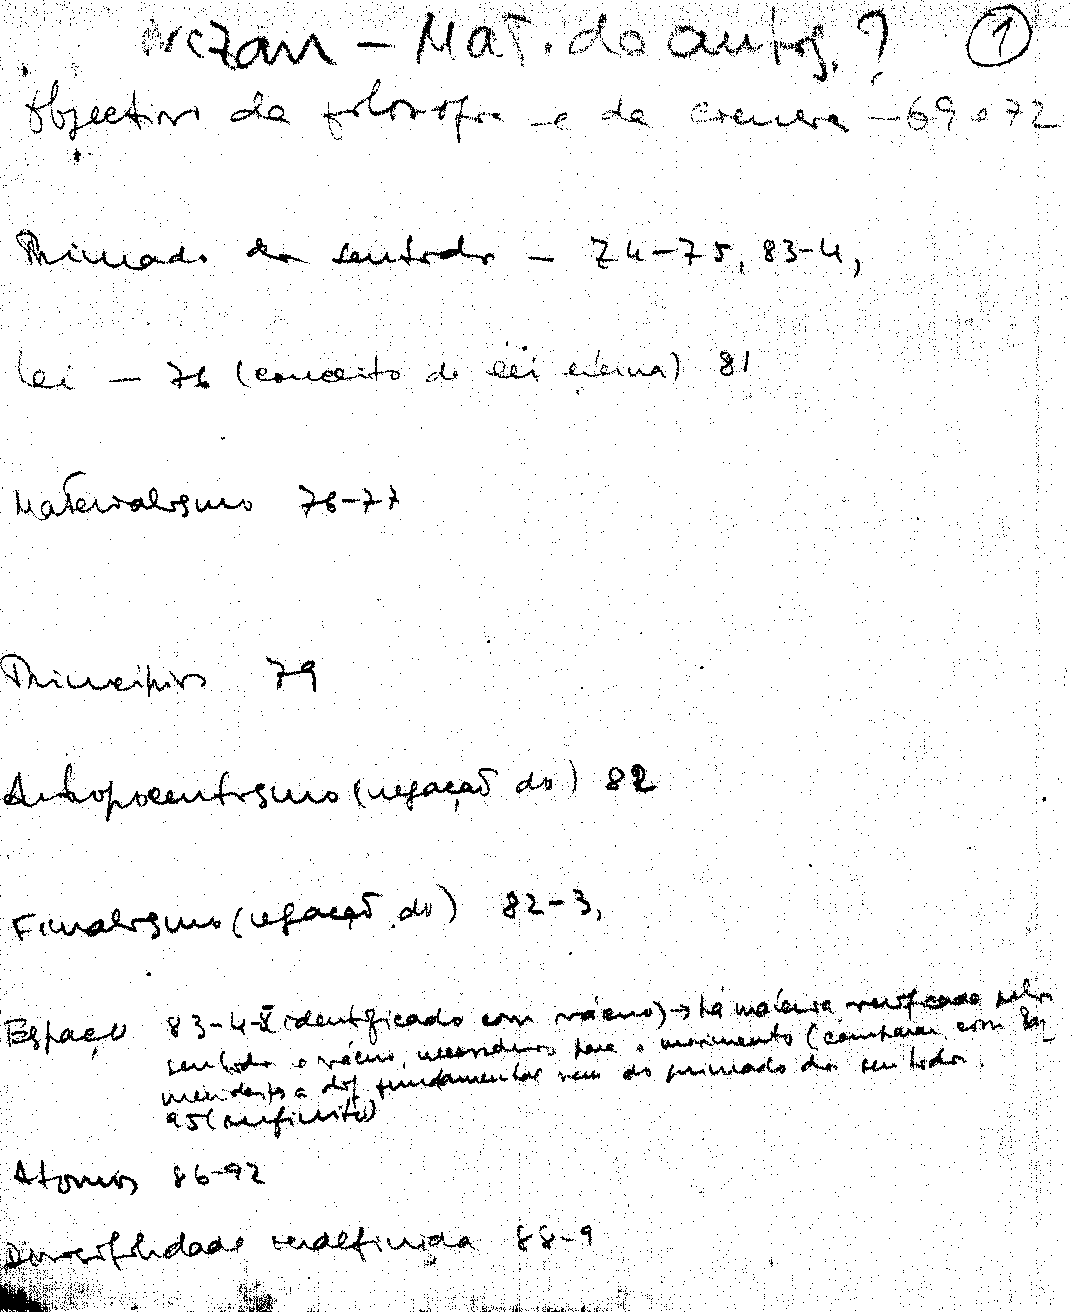 Nizan – Mat. da antig. ? 1
Objectivos da filosofia – e da ciência – 69 e 72
Primado dos sentidos – 74-75, 83-4,
Lei – 76 (conceito de lei eterna) 81
Materialismo 76-77
Princípios 79
Antropocentrismo (negação do) 82
Finalismo (negação do) 82-3,
Espaço 83-4-8 identificado com vácuo) → há matéria verificada pelos
sentidos e vácuo, necessário para o movimento (comparar com
a dif. fundamental vem do primado dos sentidos.
95 (infinito)
Atomos 86-92
Divisibilidade indefinida 88-9